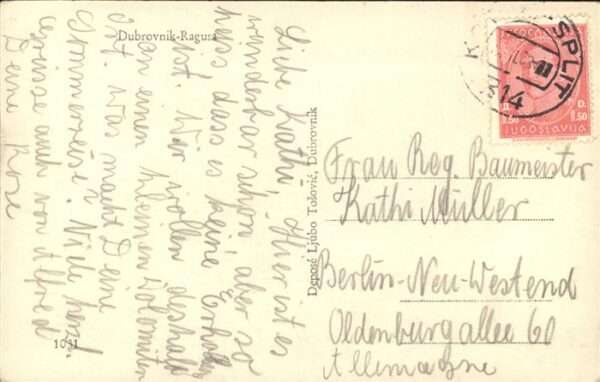 Dubrovnik-Ragusa
Liebe Kathi! Hier ist es
wunderbar schön aber so
heiss dass es keine Erholung
ist. Wir wollen deshalb
an einen kleinen Dolomiten
Ort. was macht Deine
Sommerreise? Viele herzl.
Grüsse auch von Alfred
Deine Rose
1031
Deposé Ljubo Tošović, Dubrovnik
SPLIT
314
D.
1.50
1.50
JUGOSLAVIJA
Frau Reg. Baumeister
Kathi Müller
Berlin-Neu-Westend
Oldenburgallee 60
Allemagne